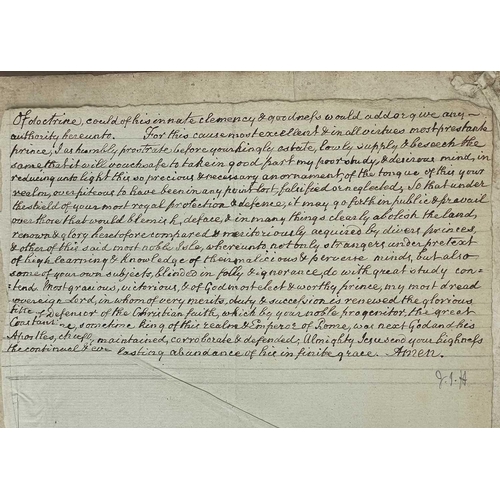 Of doctrine, could of his innate clemency & goodness would add or give any
authority hereunto. For this cause most excellent & in all virtues most prestante
prince, I as humbly, prostrate before your kingly estate, lowly supply & beseech the
same that it will vouchsafe to take in good part my poor study, & desirous mind, in
reducing unto light this so precious & necessary an ornament of the tongue of this your
realm, over piteous to have been in any point lost, falsified or neglected, So that under
the shield of your most royal protection & defence, it may go forth in public & prevail
over those that would blemish, deface, & in many things clearly abolish the laud,
renown & glory heretofore compared & meritoriously acquired by divers princes,
& other of this said most noble Isle, whereunto, not only strangers under pretext
of high learning & knowledge of their malicious & perverse minds, but also
some of your own subjects, blinded in folly & ignorance, do with great study con=
=tend. Most gracious, victorious, & of God most elect & worthy prince, my most dread
sovereign Lord, in whom of very merits, duty & succession is renewed the glorious
title Defensor of the Christian faith, which by your noble progenitor, the great
Constantine, sometime king of this realm & Emperor of Rome, was next God and his
Apostles, chiefly maintained, corroborate & defended, Almighty Jesu send your highness
the continual & ever lasting abundance of his infinite grace. Amen.
J. I. H